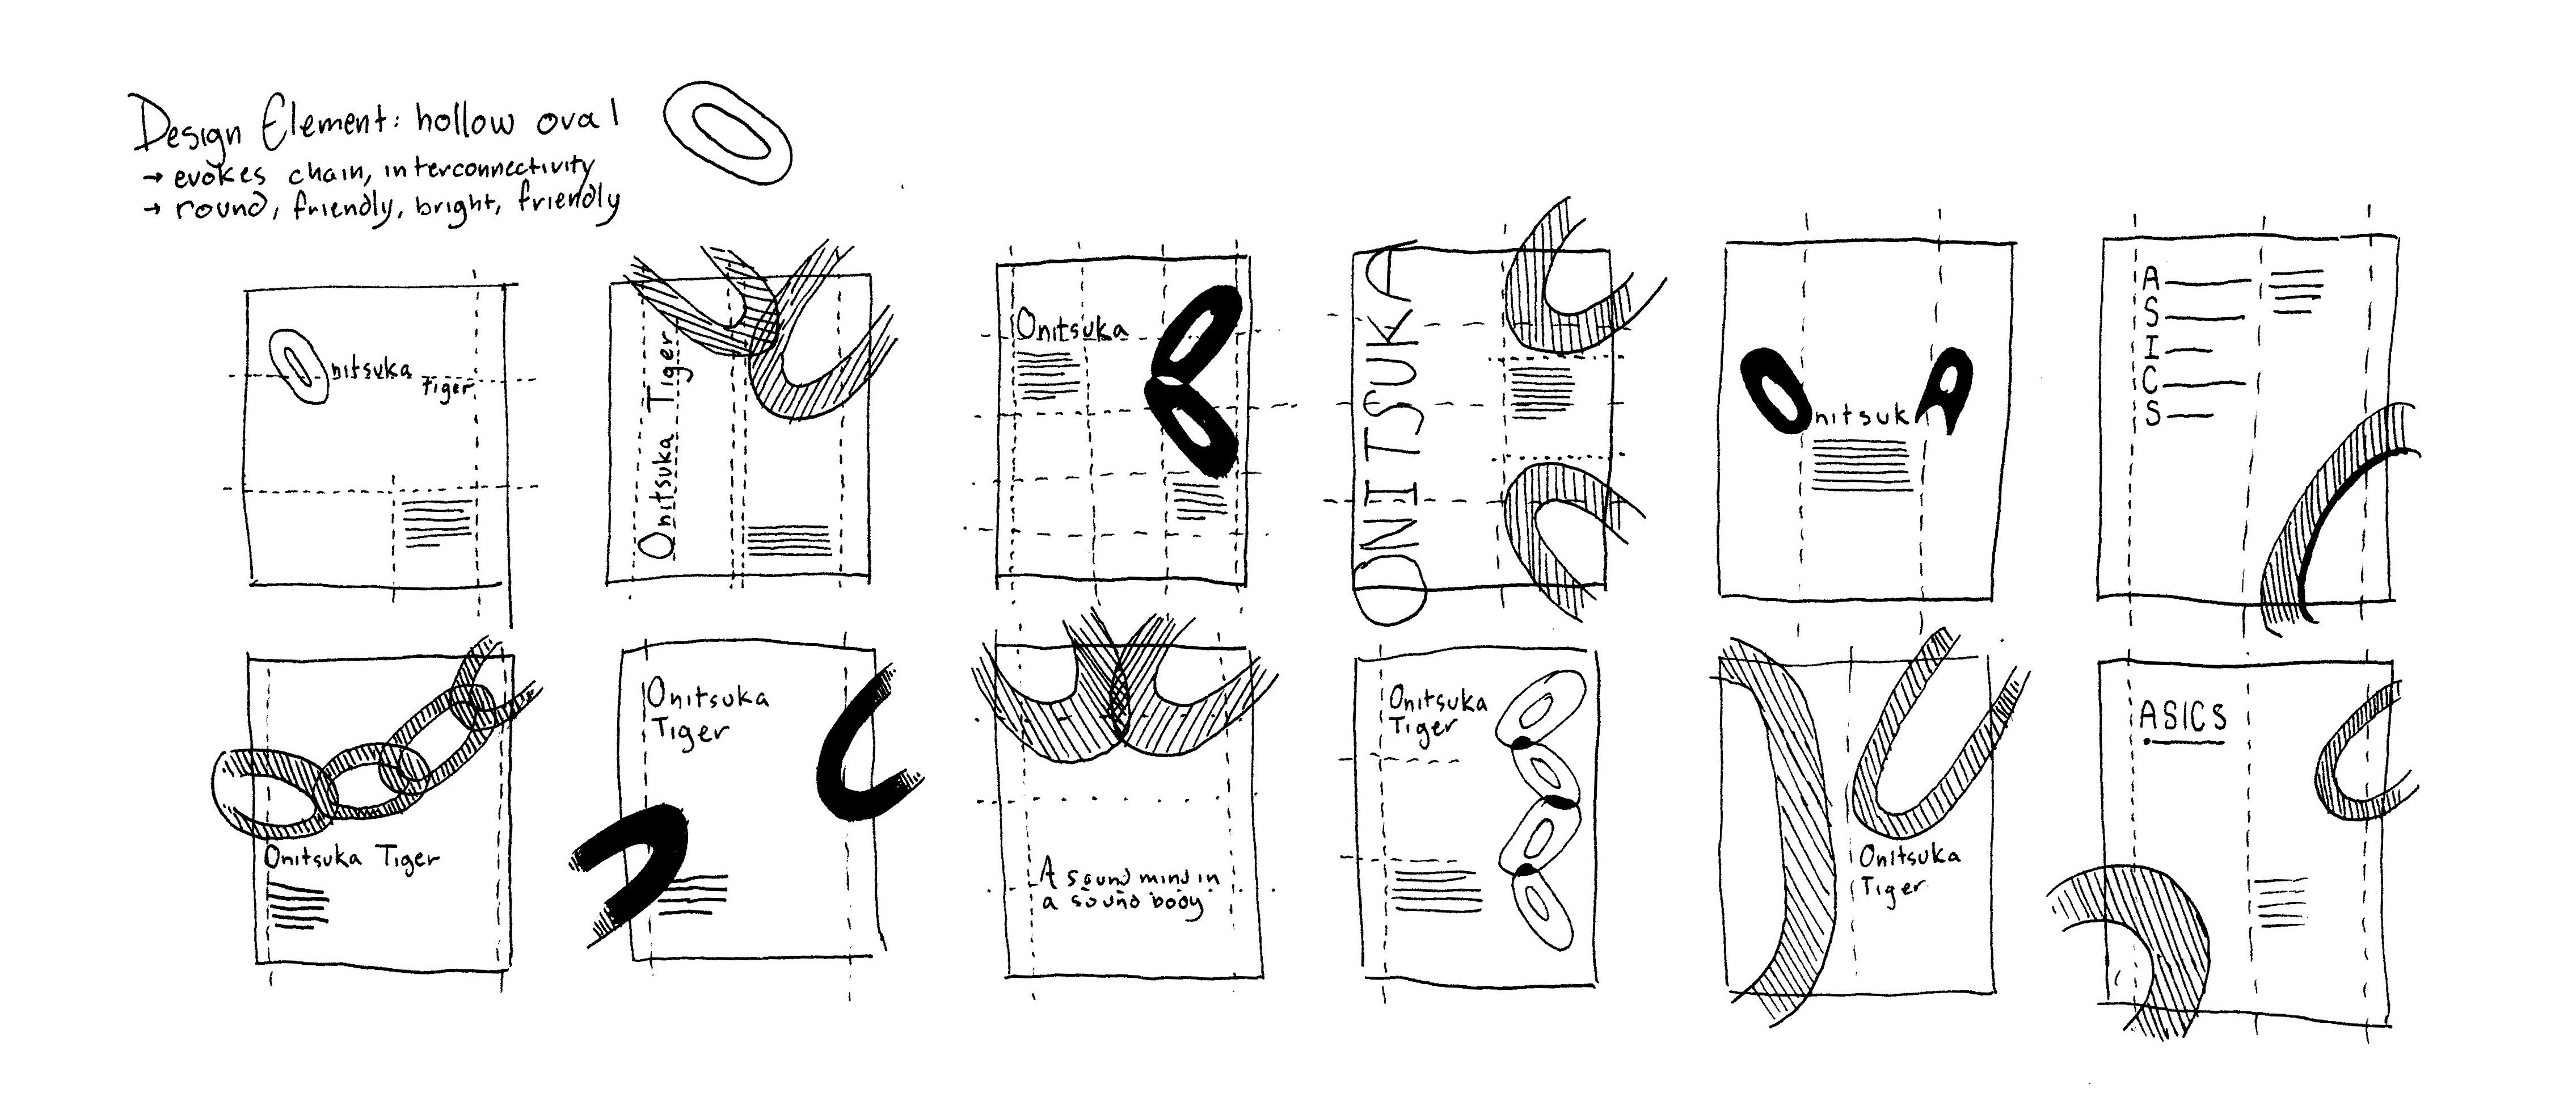 Design Element: hollow oval
→ evokes chain, interconnectivity
→ round, friendly, bright, friendly
Onitsuka
Tiger
Onitsuka Tiger
Onitsuka
ONITSUKA
Onitsuka
A
S
I
C
S
Onitsuka Tiger
Onitsuka
Tiger
A sound mind in
a sound body
Onitsuka
Tiger
Onitsuka
Tiger
ASICS